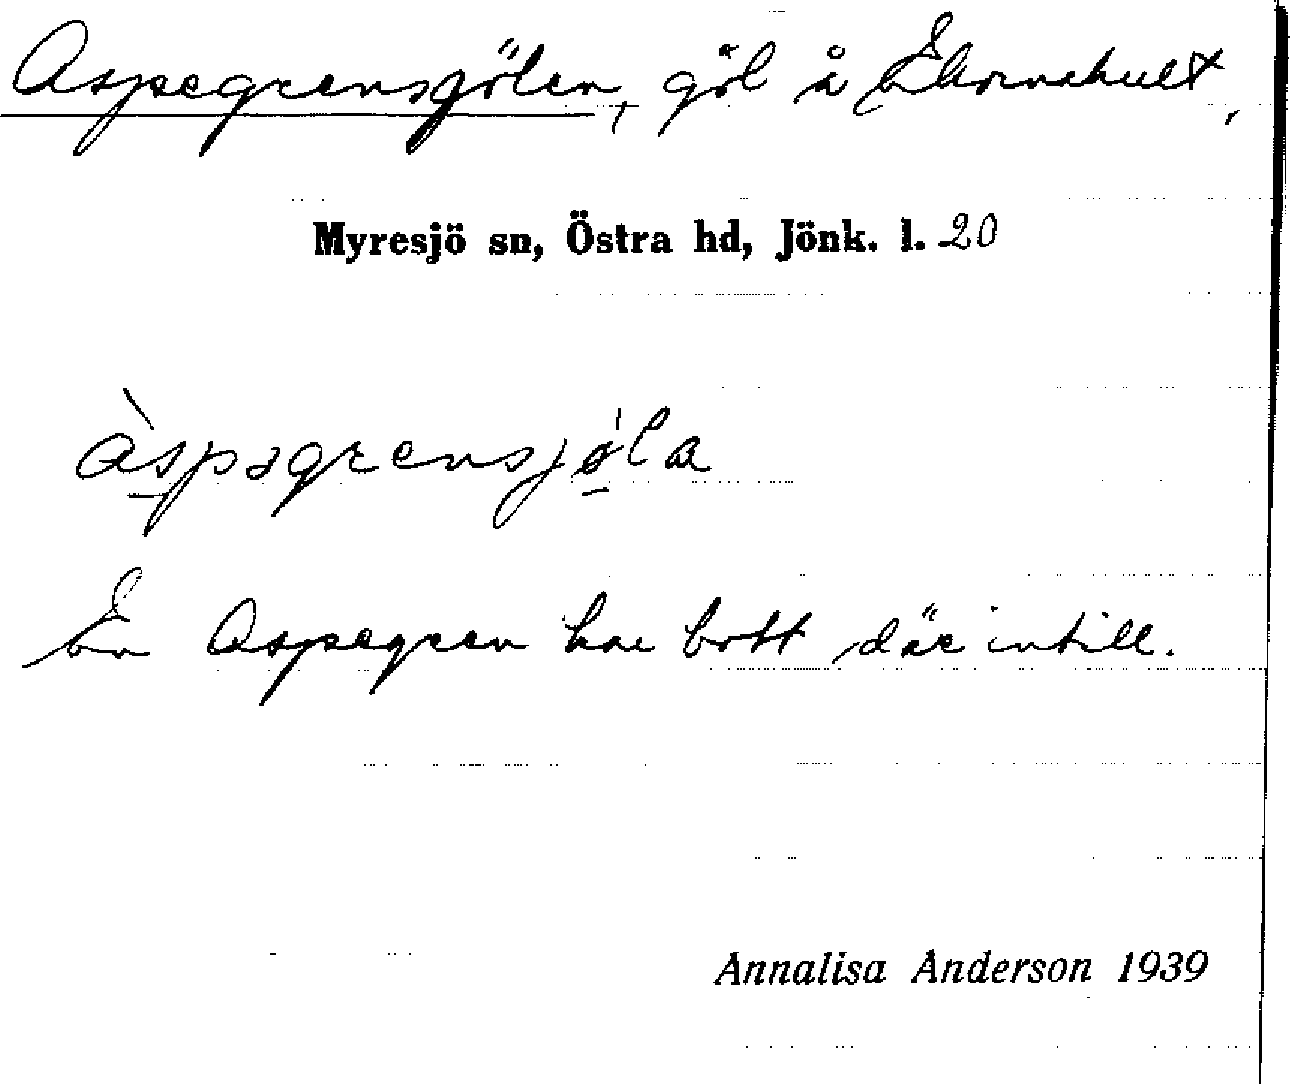 Aspegrensgölen, göl å Ekornahult,
Myresjö sn, Östra hd, Jönk. l. 20
àspəgrensjøla
En Aspegren har bott där intill.
Annalisa Anderson 1939